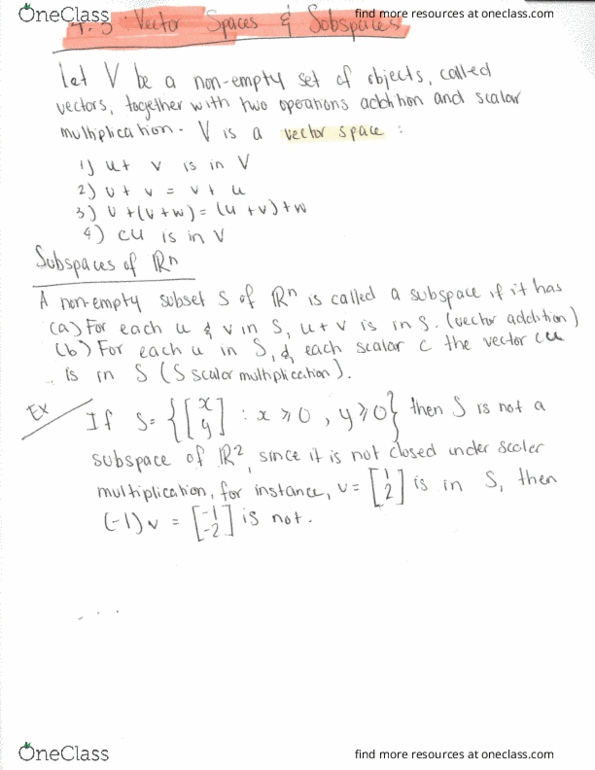 OneClass
find more resources at oneclass.com
4.3 Vector Spaces & Subspaces
find more resources at oneclass.com
Let V be a non-empty set of objects, called
vectors, together with two operations addition and scalar
multiplication. V is a vector space :
1) u + v is in V
2) u + v = v + u
3) u + (v + w) = (u + v) + w
4) cu is in V
Subspaces of ℝⁿ
A non-empty subset S of ℝⁿ is called a subspace if it has
(a) For each u & v in S, u + v is in S. (vector addition)
(b) For each u in S, & each scalar c the vector cu
is in S (S scalar multiplication).
Ex
If S = {[x y] : x ≥ 0, y ≥ 0} then S is not a
subspace of ℝ², since it is not closed under scaler
multiplication, for instance, v = [1 2] is in S, then
(-1)v = [-1 -2] is not.
OneClass
find more resources at oneclass.com